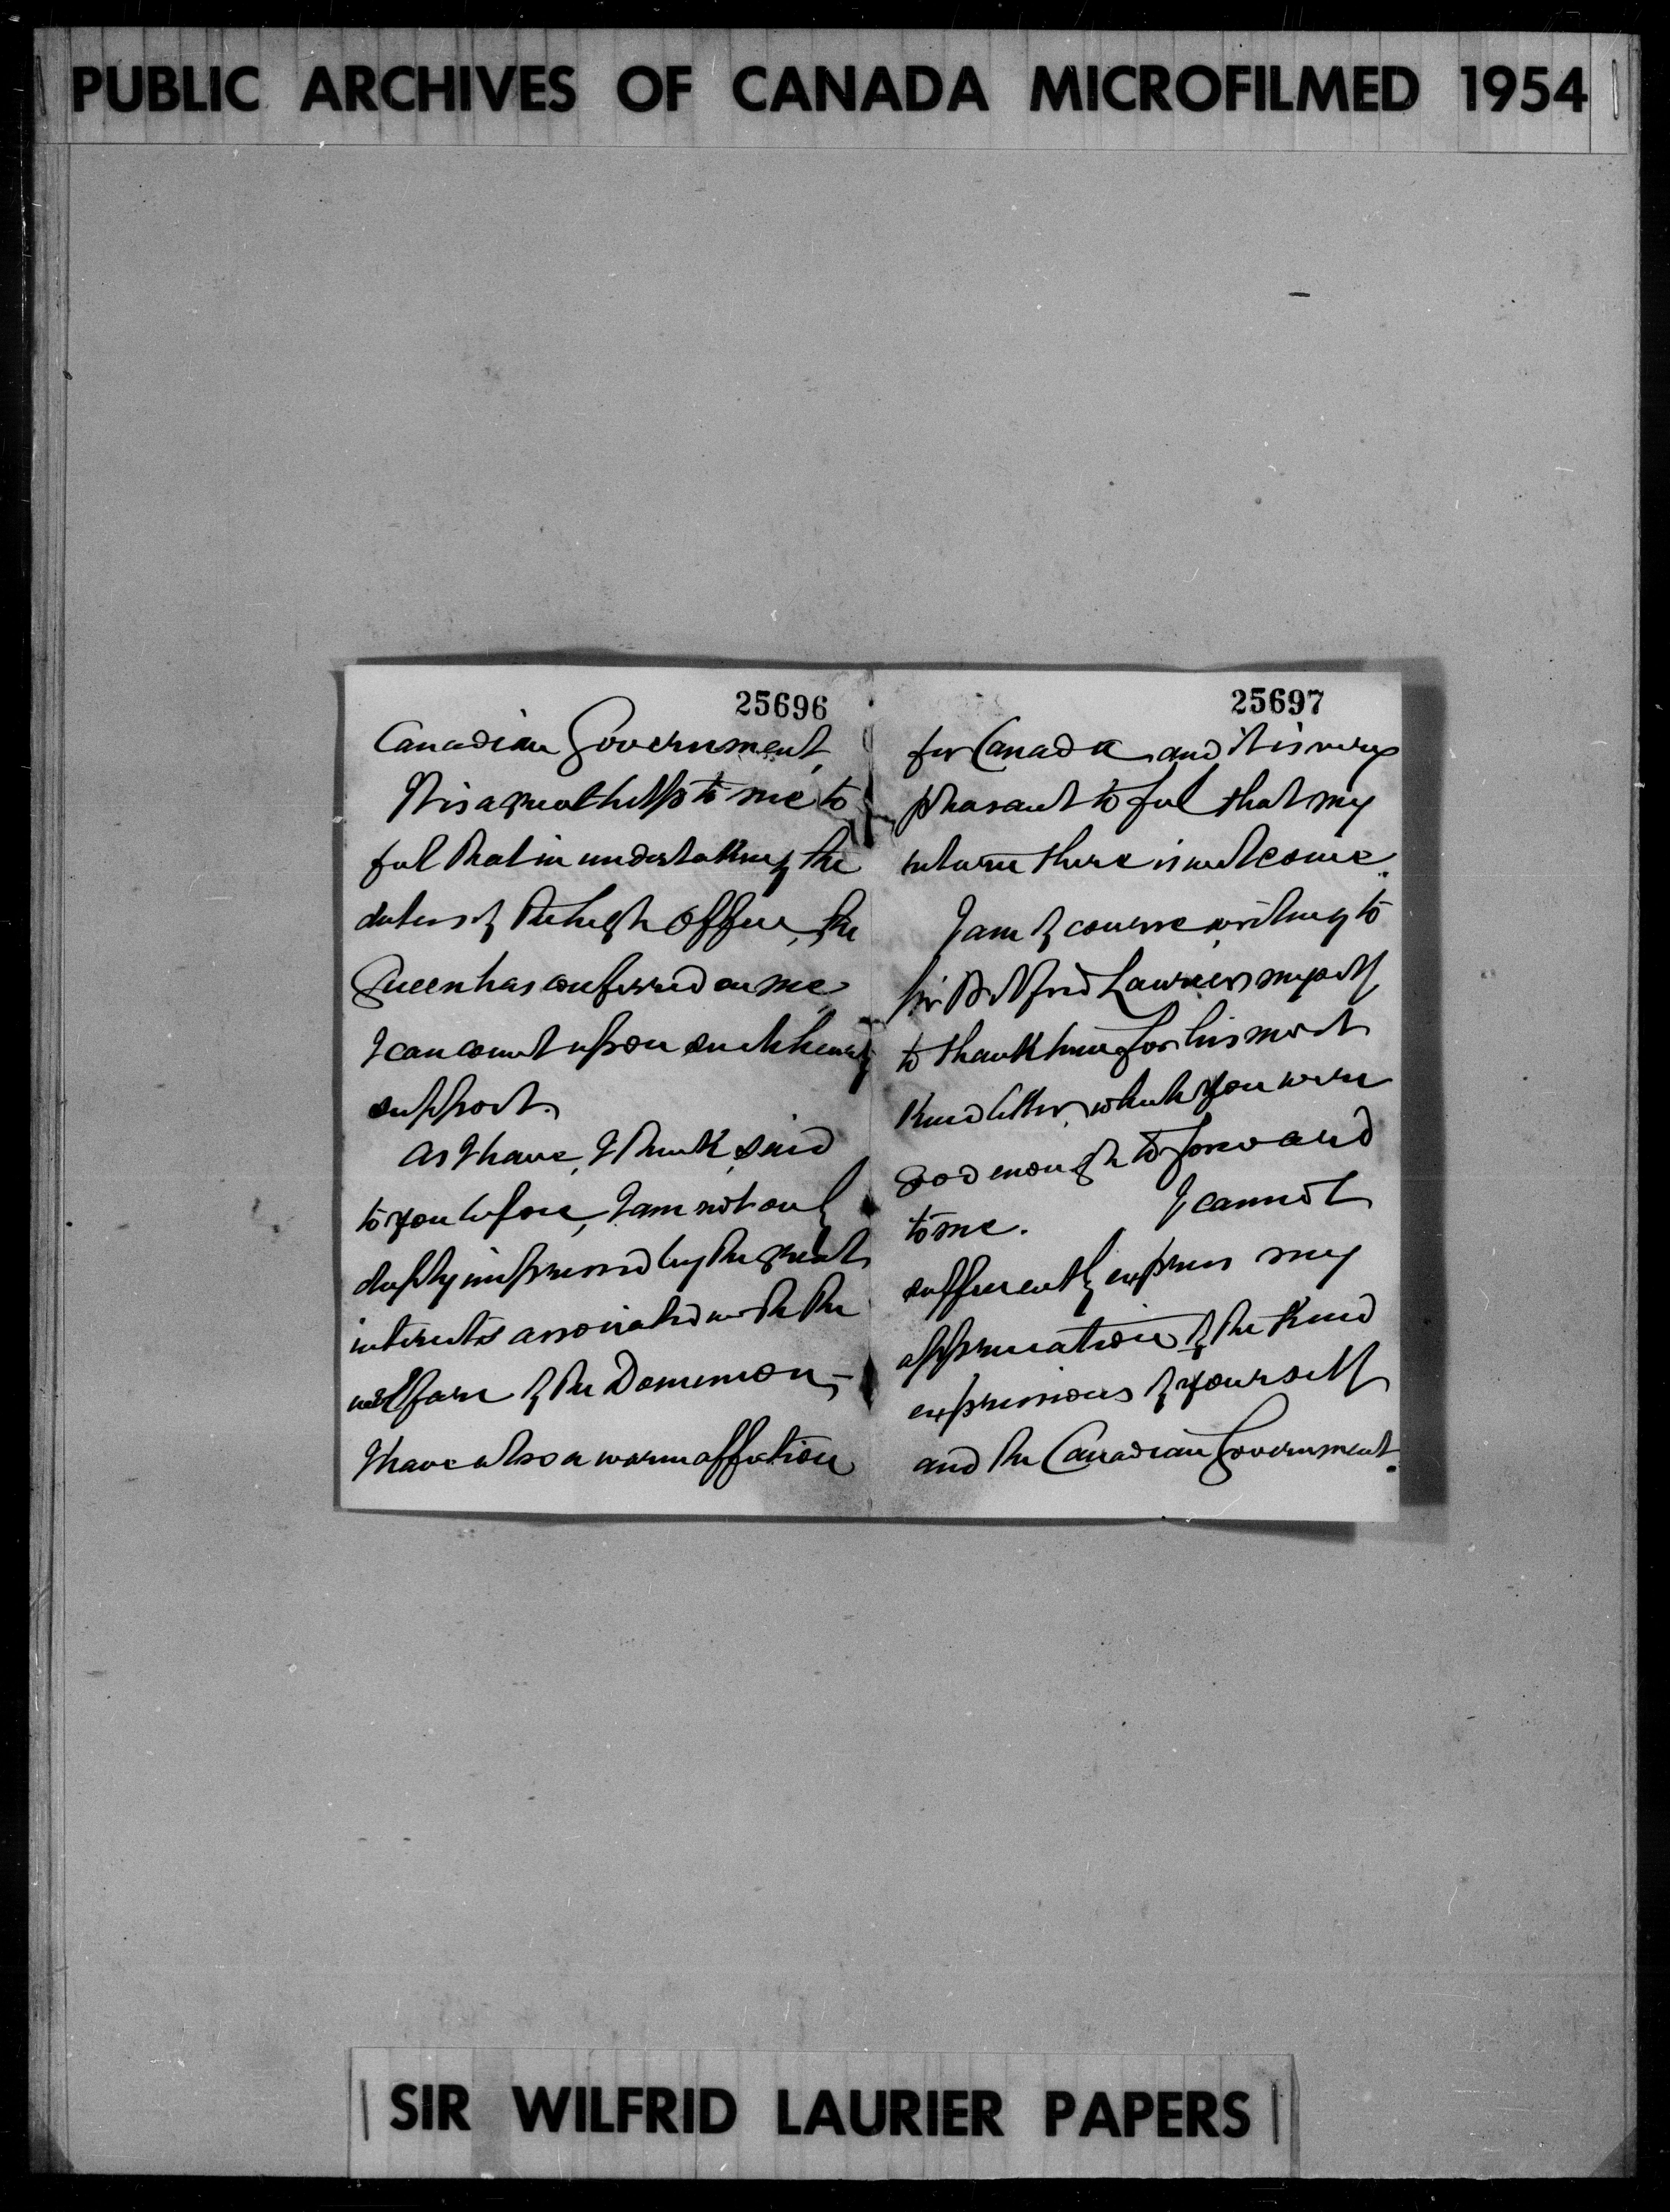 PUBLIC ARCHIVES OF CANADA MICROFILMED 1954
25696
Canadian Government,
It is a great help to me to
feel that in undertaking the
duties of the high Office, the
Queen has conferred on me
I can count upon such hearty
support.
As I have, I think, said
to you before, I am not only
deeply impressed by the great
interests associated with the
welfare of the Dominion,-
I have also a warm affection
25697
for Canada and it is very
pleasant to feel that my
return there is welcome.
I am of course writing to
Sir Wilfrid Laurier myself
to thank him for his most
kind letter, which you were
good enough to forward
to me. I cannot
sufficiently express my
appreciation of the kind
expressions of yourself
and the Canadian Government.
SIR WILFRID LAURIER PAPERS